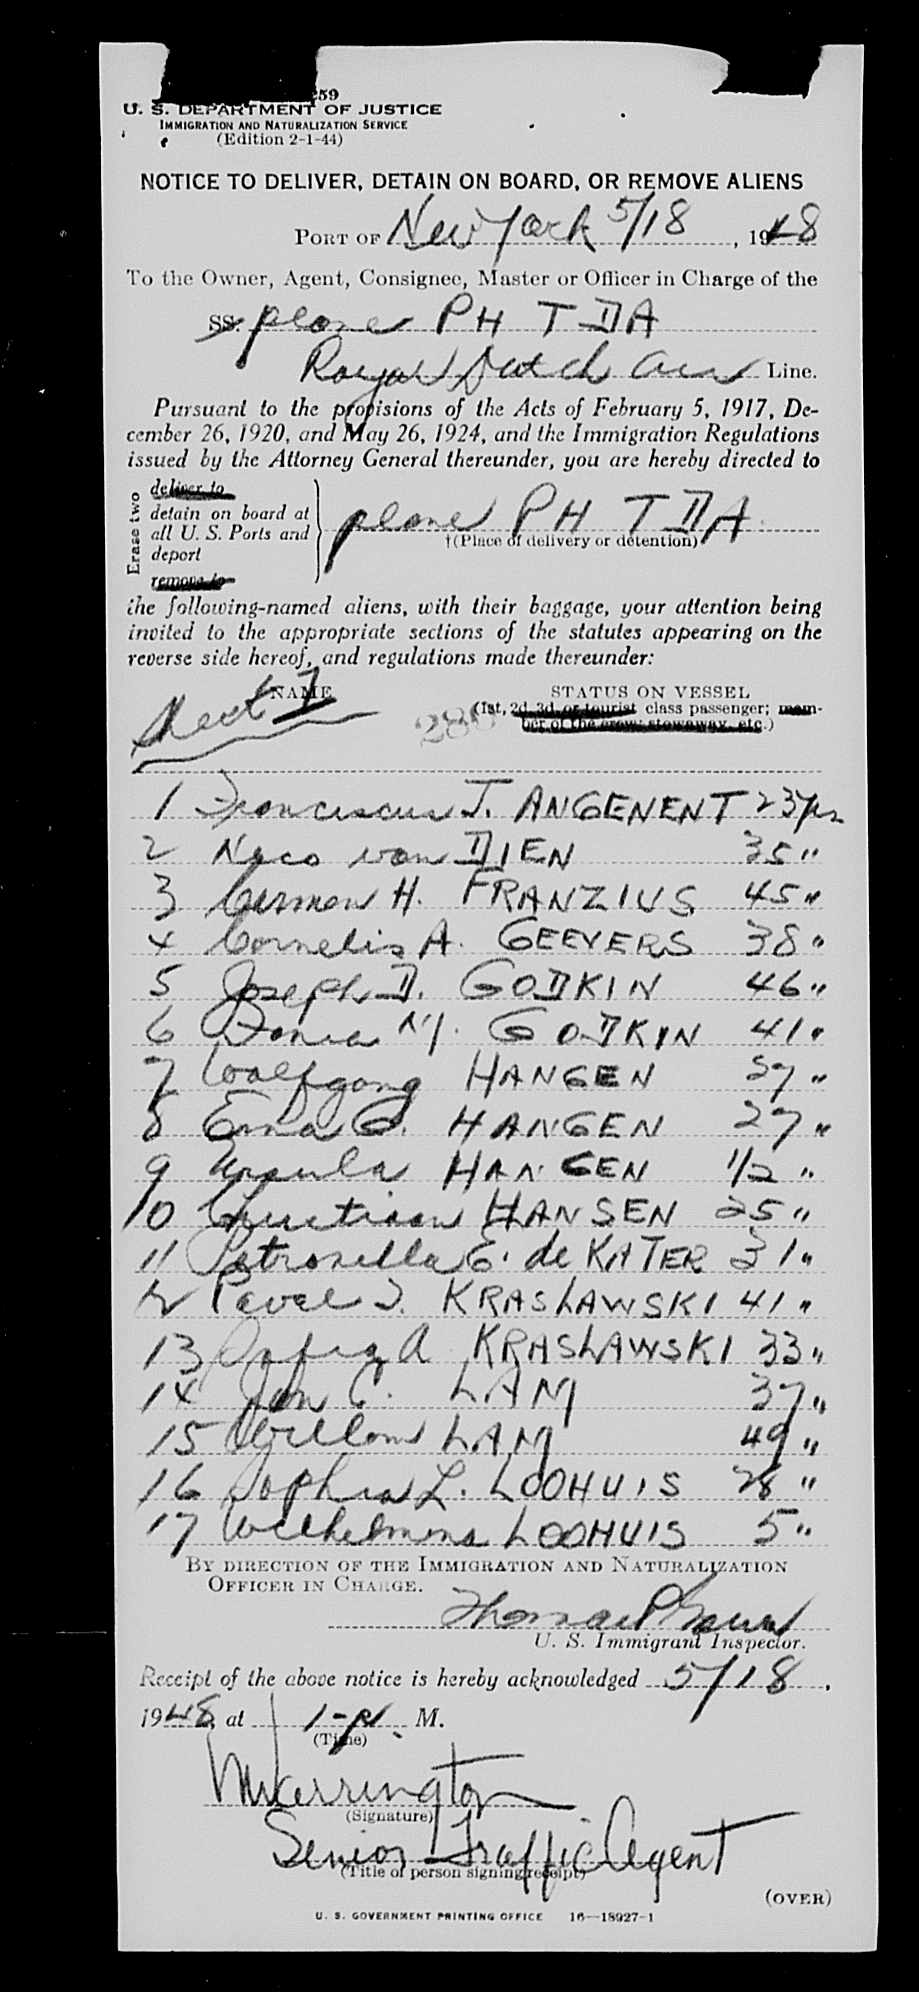 259
U. S. DEPARTMENT OF JUSTICE
IMMIGRATION AND NATURALIZATION SERVICE
(Edition 2-1-44)
NOTICE TO DELIVER, DETAIN ON BOARD, OR REMOVE ALIENS
PORT OF New York 5/18, 1948
To the Owner, Agent, Consignee, Master or Officer in Charge of the
SS. plane PH TDA
Royal Dutch Air Line.
Pursuant to the provisions of the Acts of February 5, 1917, De-
cember 26, 1920, and May 26, 1924, and the Immigration Regulations
issued by the Attorney General thereunder, you are hereby directed to
Erase two
deliver to
detain on board at
all U. S. Ports and
deport
remove to
plane PH TDA
†(Place of delivery or detention)
the following-named aliens, with their baggage, your attention being
invited to the appropriate sections of the statutes appearing on the
reverse side hereof, and regulations made thereunder:
NAME STATUS ON VESSEL
Sheet 1 (1st, 2d, 3d, or tourist class passenger; mem-
ber of the crew; stowaway, etc.)
1 Franciscus J. ANGENENT 23 yrs
2 Naco van DIEN 35 "
3 H. FRANZIUS 45 "
4 Cornelis A. GEEVERS 38 "
5 Joseph D. GODKIN 46 "
6 M. GODKIN 41 "
7 Wolfgang HANGEN 37 "
8 Erna G. HANGEN 27 "
9 Ursula HANGEN 1/2 "
10 Christiaan HANSEN 25 "
11 Petronella E. de KATER 31 "
12 Pavel J. KRASLAWSKI 41 "
13 A KRASLAWSKI 33 "
14 Jan C. LAM 37 "
15 Willem LAM 49 "
16 Sophia L. LOOHUIS 28 "
17 Wilhelmina LOOHUIS 5 "
BY DIRECTION OF THE IMMIGRATION AND NATURALIZATION
OFFICER IN CHARGE.
Thomas P.
U. S. Immigrant Inspector.
Receipt of the above notice is hereby acknowledged 5/18,
1948, at 1-P. M.
(Time)
Warrington
(Signature)
Senior Traffic Agent
(Title of person signing receipt)
(OVER)
U. S. GOVERNMENT PRINTING OFFICE 16—18927-1